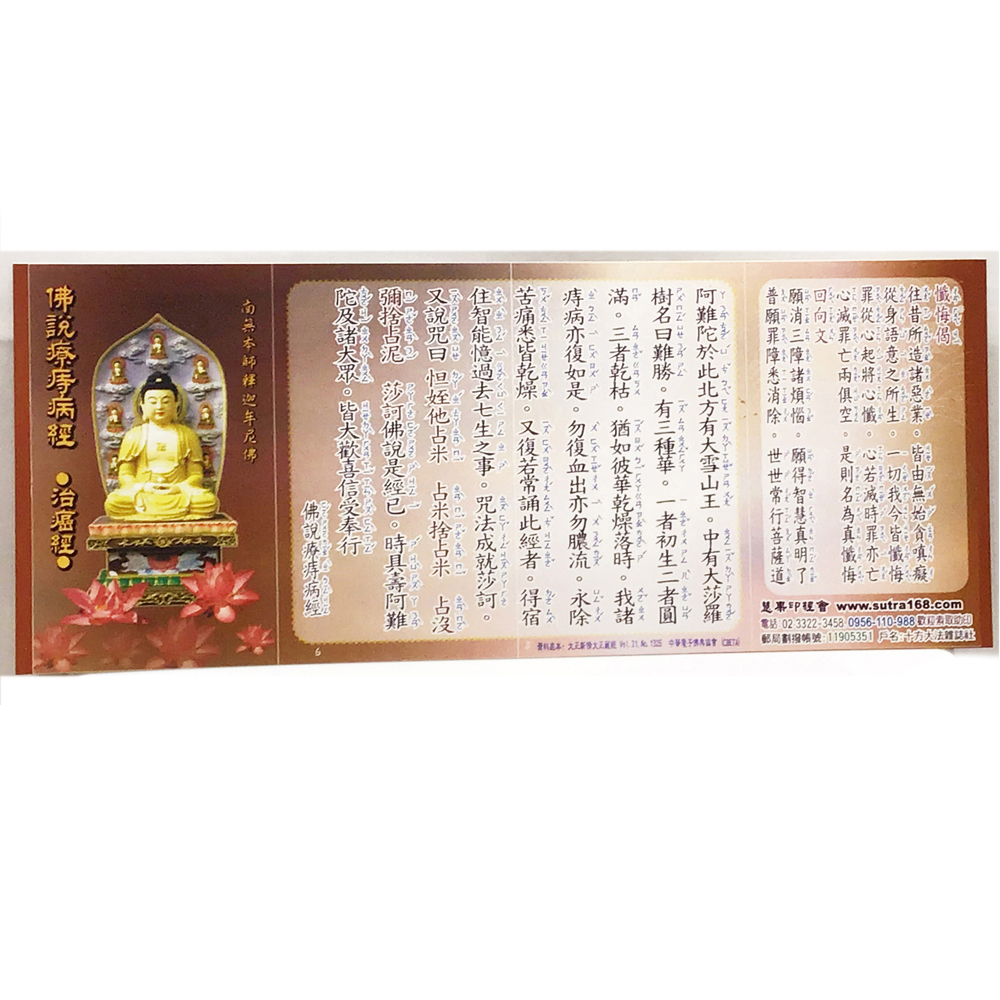 懺悔偈
往昔所造諸惡業。皆由無始貪嗔癡
從身語意之所生。一切我今皆懺悔
罪從心起將心懺。心若滅時罪亦亡
心滅罪亡兩俱空。是則名為真懺悔
回向文
願消三障諸煩惱。願得智慧真明了
普願罪障悉消除。世世常行菩薩道
www.sutra168.com
電話 02 3322-3458 0956-110-988 歡迎索取助印
郵局劃撥帳號:11905351 戶名:十方大法雜誌社
阿難陀於此北方有大雪山王。中有大莎羅
樹名曰難勝。有三種華。一者初生二者圓
滿。三者乾枯。猶如彼華乾燥落時。我諸
痔病亦復如是。勿復血出亦勿膿流。永除
苦痛悉皆乾燥。又復若常誦此經者。得宿
住智能憶過去七生之事。咒法成就莎訶。
又說咒曰 怛姪他占米 占米捨占米 占沒
彌捨占泥 莎訶佛說是經已。時具壽阿難
陀及諸大眾。皆大歡喜信受奉行
佛說療痔病經
資料底本:大正新脩大正藏經 Vol.21,No.1325 中華電子佛典協會 (CBETA)
6
南無本師釋迦牟尼佛
佛說療痔病經 ●治癌經●